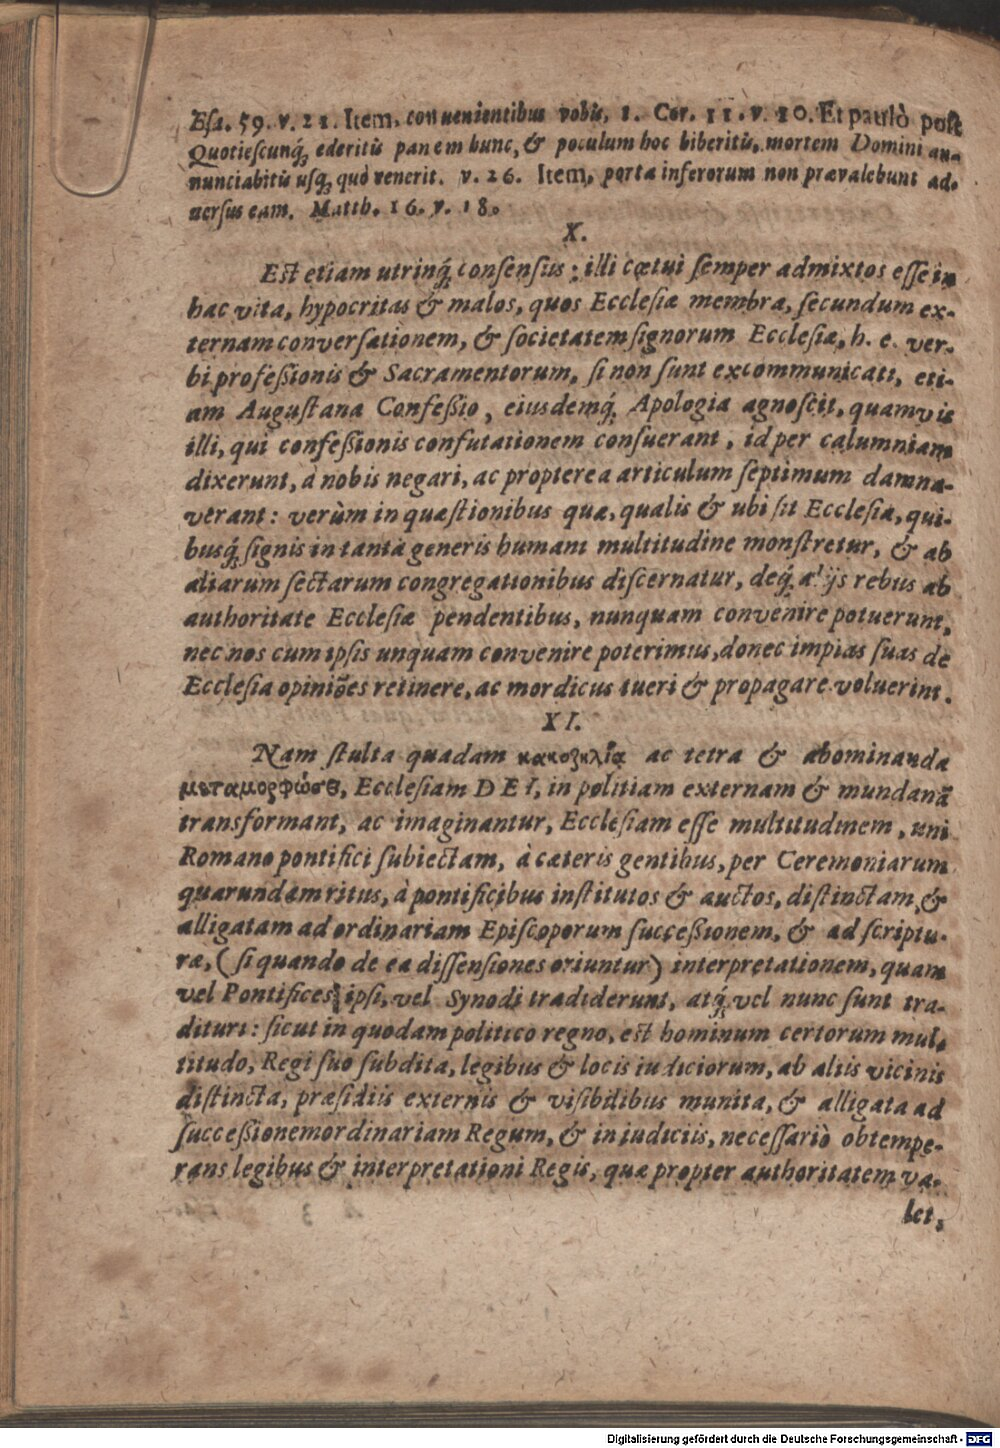 Esa. 59. v. 21. Item, conuenientibus vobis, 1. Cor. 11. v. 20. Et paulò post
Quotiescunq́; ederitis panem hunc, & poculum hoc biberitis, mortem Domini an-
nunciabitis usq; quò venerit. v. 26. Item, porta inferorum non prævalebunt ad-
uersus eam. Matth. 16. v. 18.
X.
Est etiam utrinq́; consensus; illi cœtui semper admixtos esse in
hac vita, hypocritas & malos, quos Ecclesiæ membra, secundum ex-
ternam conversationem, & societatem signorum Ecclesiæ, h. e. ver-
bi professionis & Sacramentorum, si non sunt excommunicati, eti-
am Augustana Confessio, eiusdemq́; Apologia agnoscit, quamvis
illi, qui confessionis confutationem consuerant, id per calumniam
dixerunt, à nobis negari, ac propterea articulum septimum damna-
verant: verùm in quæstionibus quæ, qualis & ubi sit Ecclesia, qui-
busq́; signis in tanta generis humani multitudine monstretur, & ab
aliarum sectarum congregationibus discernatur, deq́; alijs rebus ab
authoritate Ecclesiæ pendentibus, nunquam convenire potuerunt,
nec nos cum ipsis unquam convenire poterimus, donec impias suas de
Ecclesia opiniões retinere, ac mordicus tueri & propagare voluerint.
XI.
Nam stulta quadam κακοζηλία ac tetra & abominanda
μεταμορφώσει, Ecclesiam DEI, in politiam externam & mundanā
transformant, ac imaginantur, Ecclesiam esse multitudinem, uni
Romano pontifici subiectam, à cæteris gentibus, per Ceremoniarum
quarundam ritus, à pontificibus institutos & auctos, distinctam, &
alligatam ad ordinariam Episcoporum successionem, & ad scriptu-
ræ, (si quando de ea dissensiones oriuntur) interpretationem, quam
vel Pontifices ipsi, vel Synodi tradiderunt, atq́; vel nunc sunt tra-
dituri: sicut in quodam politico regno, est hominum certorum mul-
titudo, Regi suo subdita, legibus & locis iudiciorum, ab aliis vicinis
distincta, præsidiis externis & visibilibus munita, & alligata ad
successionem ordinariam Regum, & in iudiciis, necessariò obtempe-
rans legibus & interpretationi Regis, quæ propter authoritatem va-
let,
Digitalisierung gefördert durch die Deutsche Forschungsgemeinschaft - DFG